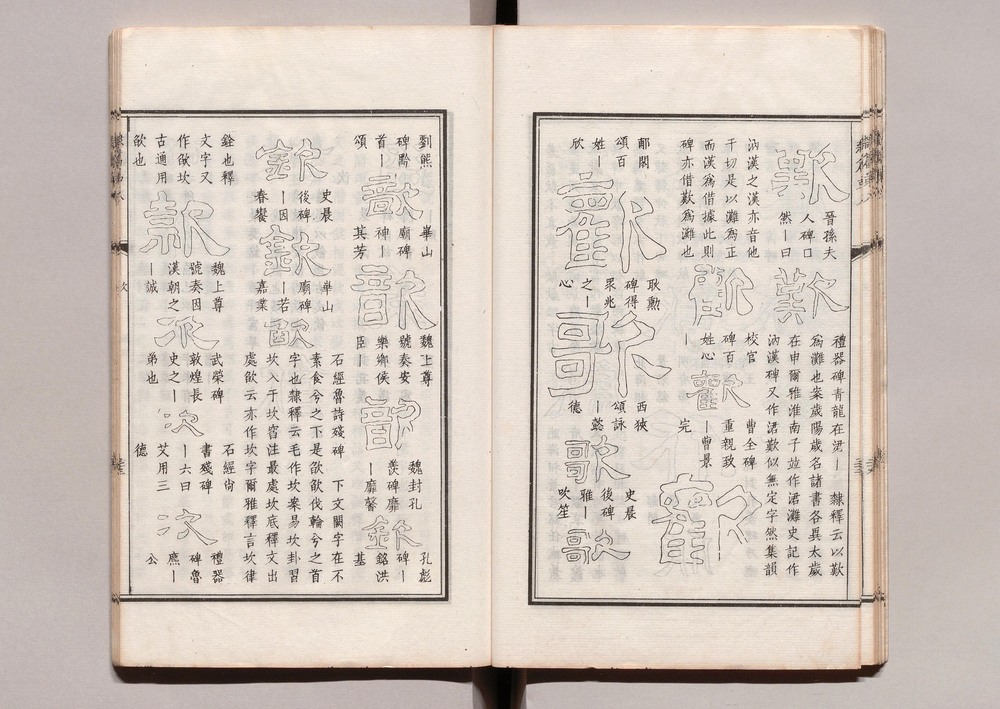 歎
晉孫夫
人碑口
然一曰
歎
禮器碑青龍在涒一 隸釋云以歎
為灘也案歲陽歲名諸書各異太歲
在申爾雅淮南子竝作涒灘史記作
汭漢碑又作涒歎似無定字然集韻
汭漢之漢亦音他
干切是以灘為正
而漢為借據此則
碑亦借歎為灘也
歡
校官
碑百
姓心
一
歡
曹全碑
重親致
一曹景
完
歡
郙閣
頌百
姓一
欣
歡
耿勳
碑得
眾兆
之一
心
歌
西狹
頌詠
一懿
德
歌
史晨
後碑
雅一
吹笙
歌
劉熊
碑黔
首一
頌
歆
華山
廟碑
神一
其芳
歆
魏上尊
號奏安
樂鄉侯
臣一
歆
魏封孔
羨碑靡
一靡馨
欽
孔彪
碑一
銘洪
基
欽
史晨
後碑
一因
春饗
欽
華山
廟碑
一若
嘉業
欿
石經魯詩殘碑 下文闕字在不
素食兮之下是欿欿伐輪兮之首
字也隸釋云毛作坎案易坎卦習
坎入于坎窞注最處坎底釋文出
處欿云亦作坎字爾雅釋言坎律
銓也釋
文字又
作欿坎
古通用
欿也
款
魏上尊
號奏因
漢朝之
一誠
次
武榮碑
敦煌長
史之一
弟也
次
石經尚
書殘碑
一六曰
艾用三
德
次
禮器
碑魯
麃一
公